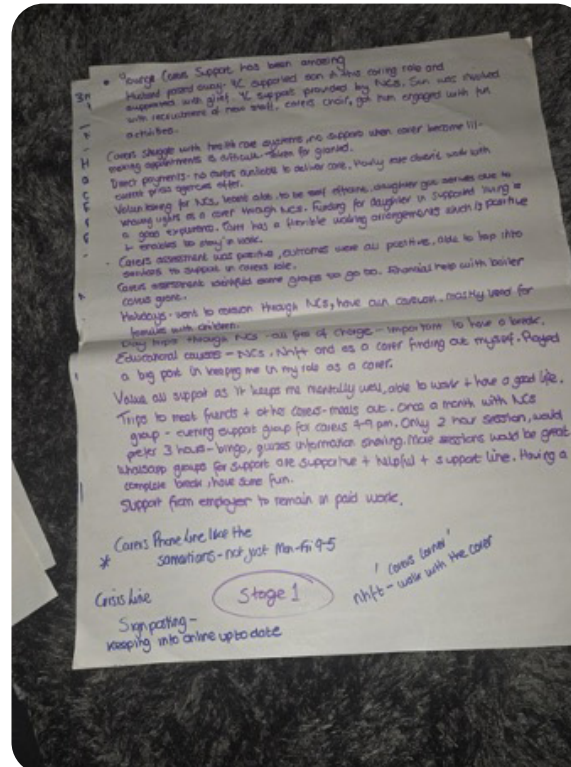 • Young Carers Support has been amazing
Husband passed away - YC supported son in this caring role and
supported with grief. YC support provided by NCS. Son was involved
with recruitment of new staff, carers choir, got him engaged with fun
activities.
Carers struggle with health care systems, no support when carer become ill-
making appointments is difficult - taken for granted.
Direct payments - no carers available to deliver care. Hourly rate doesn't work with
current price agencies offer.
Volunteering for NCS, became able to be
a carer through NCS. Funding for daughter in supported living is
a good experience. Carer has a flexible working arrangements which is positive
+ enables to stay in work.
- Carers assessment was positive, outcomes were all positive, able to tap into
services to support in carers role.
Carers assessment identified some groups to go too. Financial help with boiler
carers grant.
Holidays - went to caravan through NCS, have own caravan, mostly used for
families with children.
Day trips through NCS - all free of charge - important to have a break.
Educational courses - NCS, Nhft and as a carer finding out myself. Played
a big part in keeping me in my role as a carer.
Value all support as it keeps me mentally well, able to work + have a good life.
Trips to meet friends + other carers - meals out. Once a month with NCS
group - evening support group for carers 7-9 pm. Only 2 hour session, would
prefer 3 hours - bingo, quizzes information sharing. More sessions would be great
Whatsapp groups for support are supportive + helpful + support line. Having a
complete break, have some fun.
Support from employer to remain in paid work.
* Carers Phone Line like the
samaritans - not just Mon-Fri 9-5
Crisis Line
Stage 1
'Carers Corner'
Nhft - walk with the carer
Signposting -
keeping info online up to date